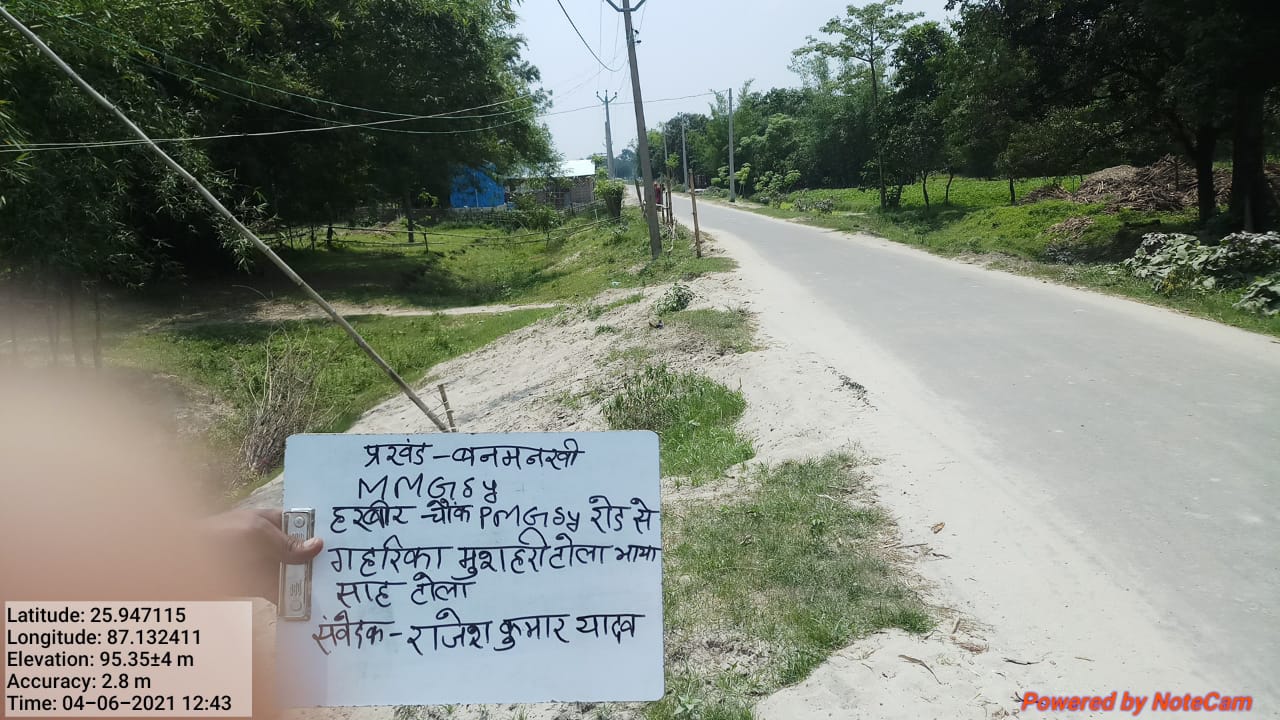 प्रखंड - बनमनखी
MMGSy
हरखीर - चौक PMGSy रोड से
गहरिका मुशहरी टोला भाया
साह टोला
संवेदक - राजेश कुमार यादव
Latitude: 25.947115
Longitude: 87.132411
Elevation: 95.35±4 m
Accuracy: 2.8 m
Time: 04-06-2021 12:43
Powered by NoteCam